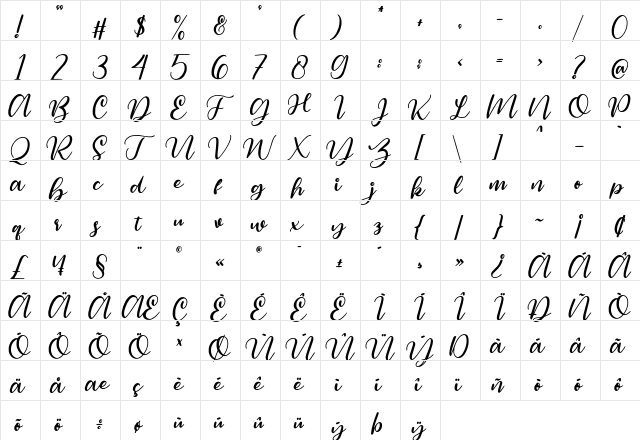 ! " # $ % & ' ( ) * + , - . / 0
1 2 3 4 5 6 7 8 9 : ; < = > ? @
A B C D E F G H I J K L M N O P
Q R S T U V W X Y Z [ \ ] ^ _ `
a b c d e f g h i j k l m n o p
q r s t u v w x y z { | } ~ ¡ ¢
£ ¥ § ¨ © « ® ¯ ± ´ ¸ » ¿ À Á Â
Ã Ä Å Æ Ç È É Ê Ë Ì Í Î Ï Ð Ñ Ò
Ó Ô Õ Ö × Ø Ù Ú Û Ü Ý Þ à á â ã
ä å æ ç è é ê ë ì í î ï ñ ò ó ô
õ ö ÷ ø ù ú û ü ý þ ÿ